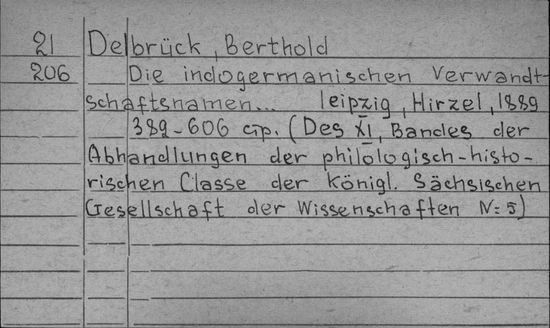 21 Delbrück, Berthold
206 Die indogermanischen Verwandt-
schaftsnamen... Leipzig, Hirzel, 1889
389-606 cтp. (Des XI, Bandes der
Abhandlungen der philologisch-histo-
rischen Classe der königl. Sächsischen
Gesellschaft der Wissenschaften N: 5)